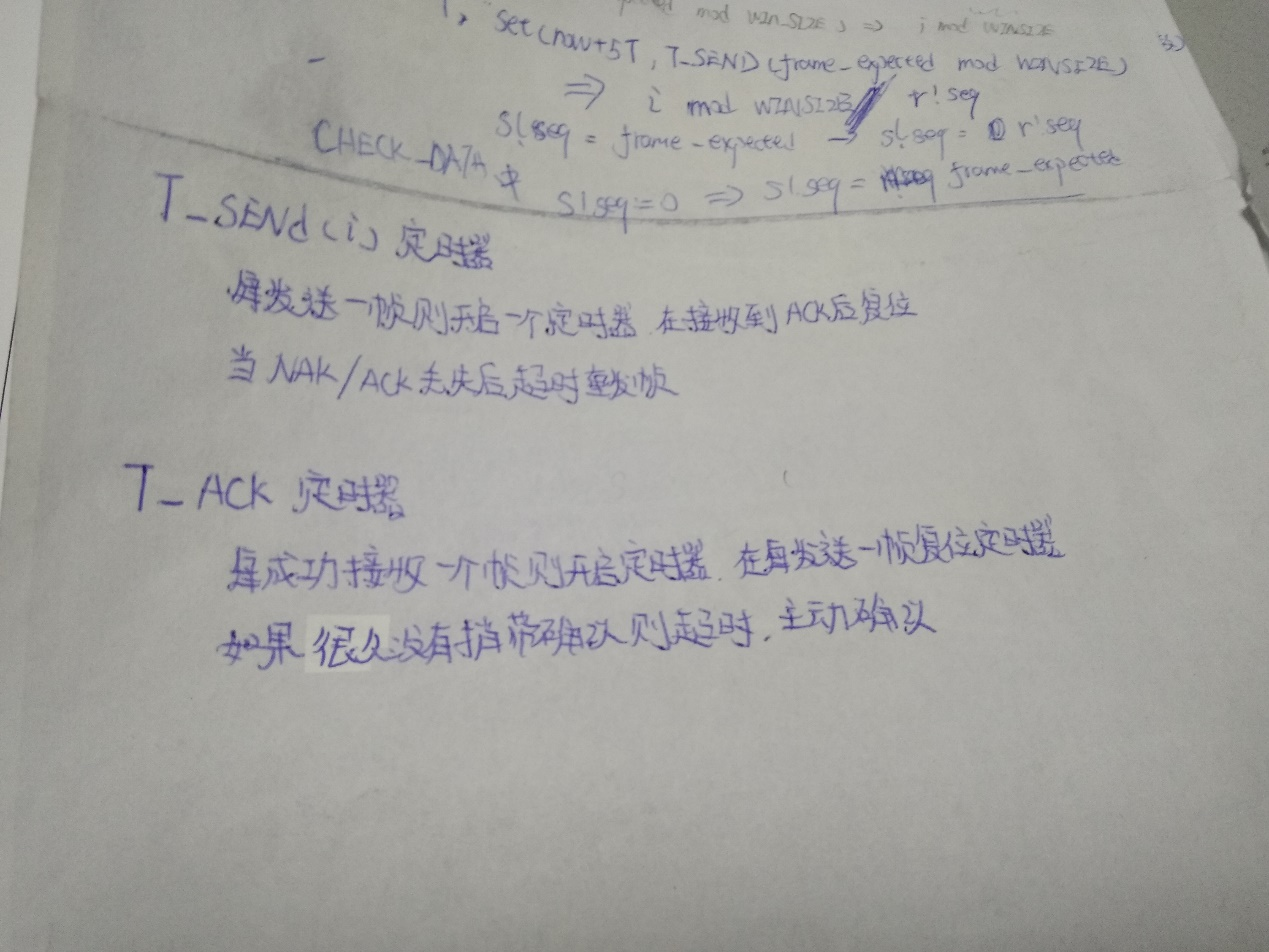 mod WIN_SIZE) => i mod WINSIZE
1, set(now+5T, T_SEND(frame_expected mod WINSIZE)
=> i mod WINSIZE r!seq
s!seq = frame_expected → s!seq = r!seq
CHECK_DATA中 s!seq=0 => s!seq = frame_expected
T_SENd(i) 定时器
每发送一帧则开启一个定时器 在接收到ACK后复位
当NAK/ACK丢失后超时重发帧
T_ACK 定时器
每成功接收一个帧则开启定时器. 在每发送一帧复位定时器
如果很久没有捎带确认则超时. 主动确认